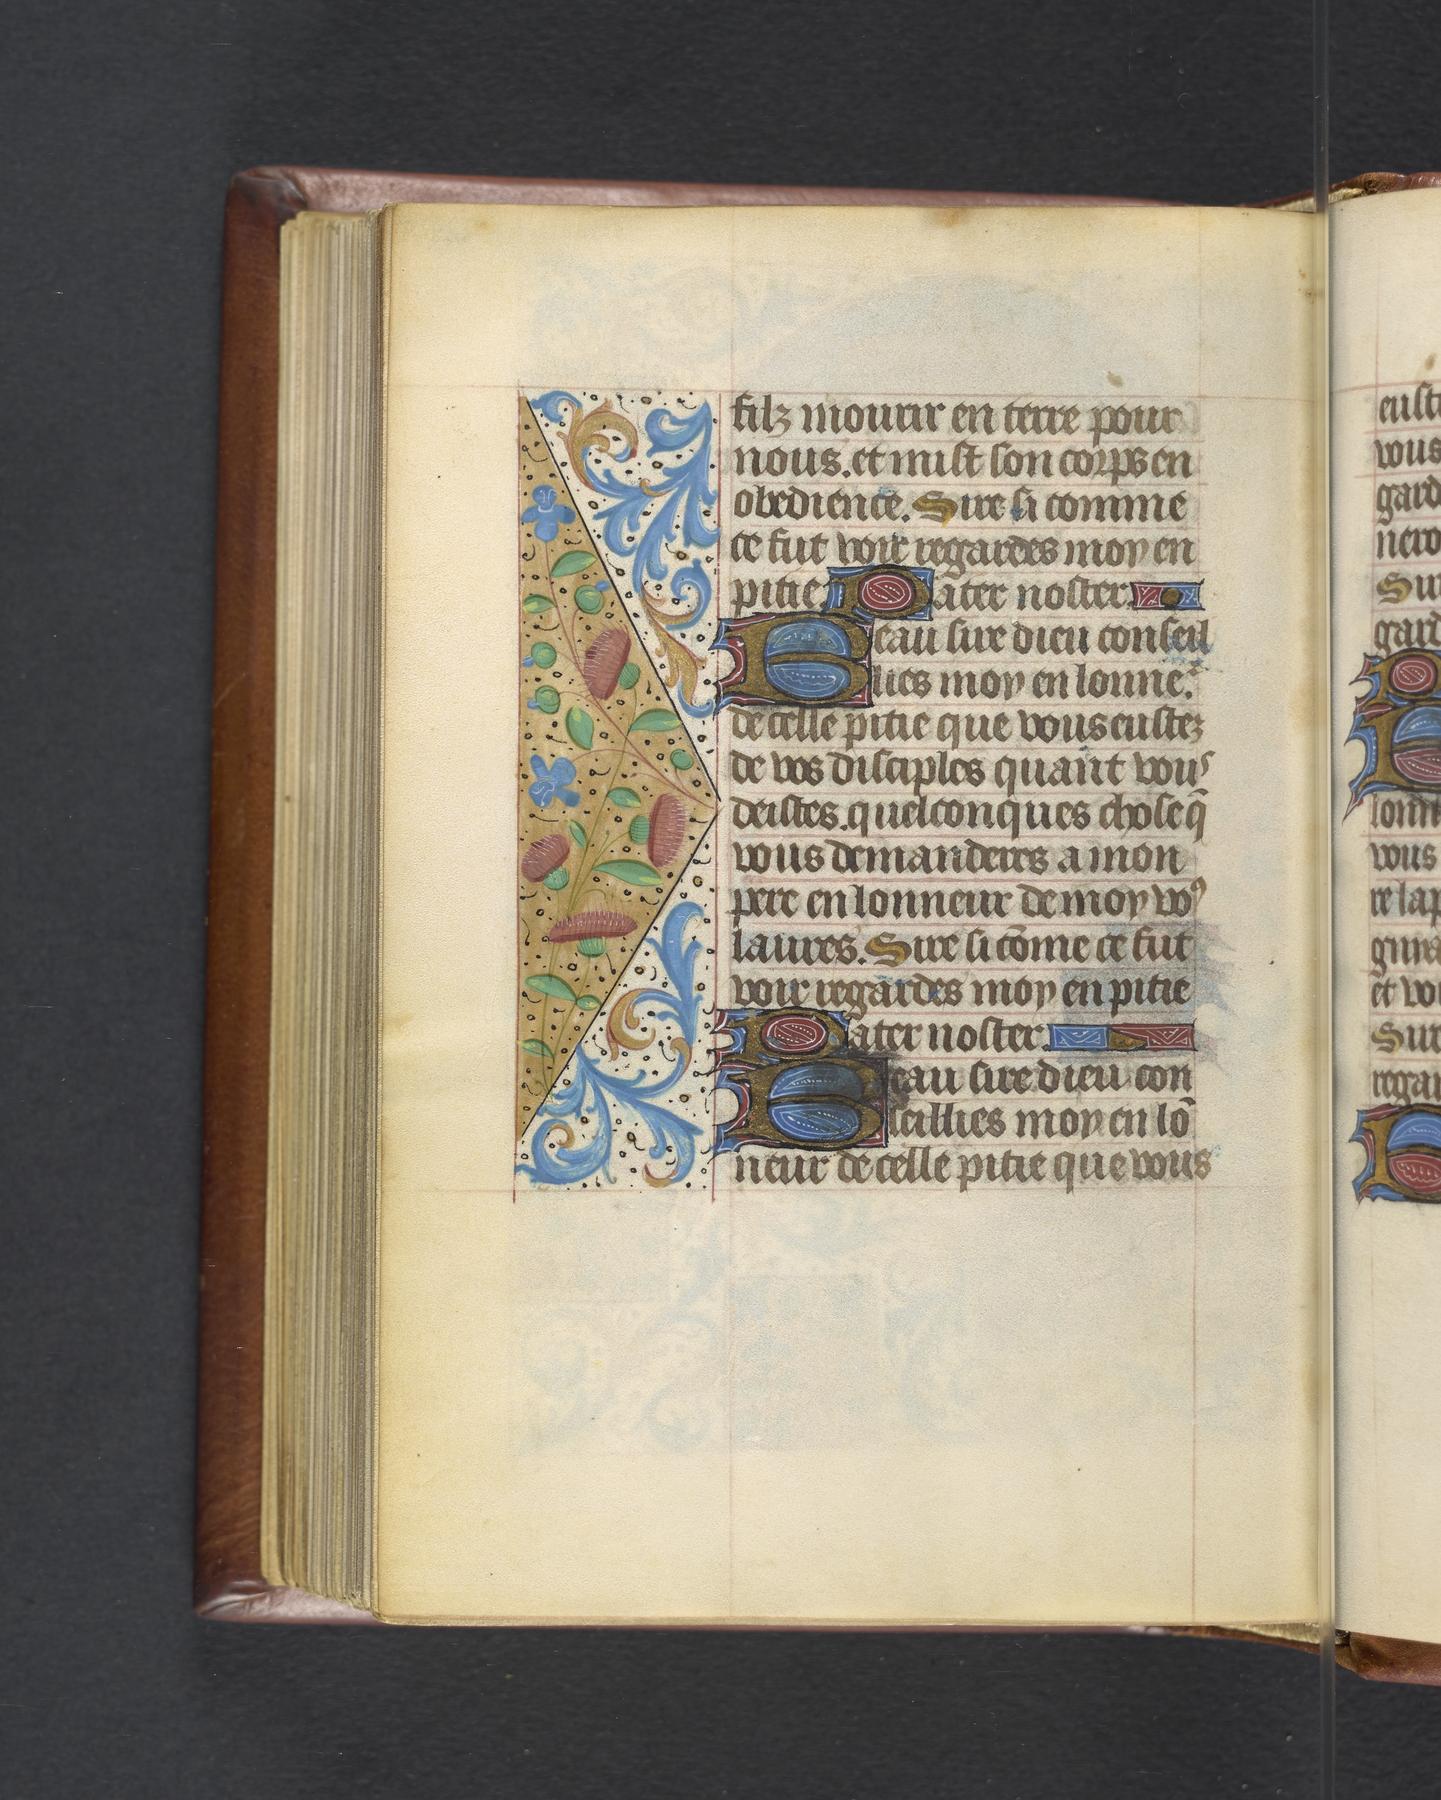 filz mourir en terre pour
nous. et mist son corps en
obedience. Sire si comme
ce fut voir regardes moy en
pitie. Pater noster.
Beau sire dieu conseil
lies moy en lonne.
de celle pitie que vous eustez
de vos disciples quant vous
deistes. quelconques chose q̃
vous demanderes a mon
pere en lonneur de moy voꝰ
laures. Sire si cõme ce fut
voir regardes moy en pitie
Pater noster.
Beau sire dieu con
seillies moy en lõ
neur de celle pitie que vous
vous
Sire
vous
et
Sire